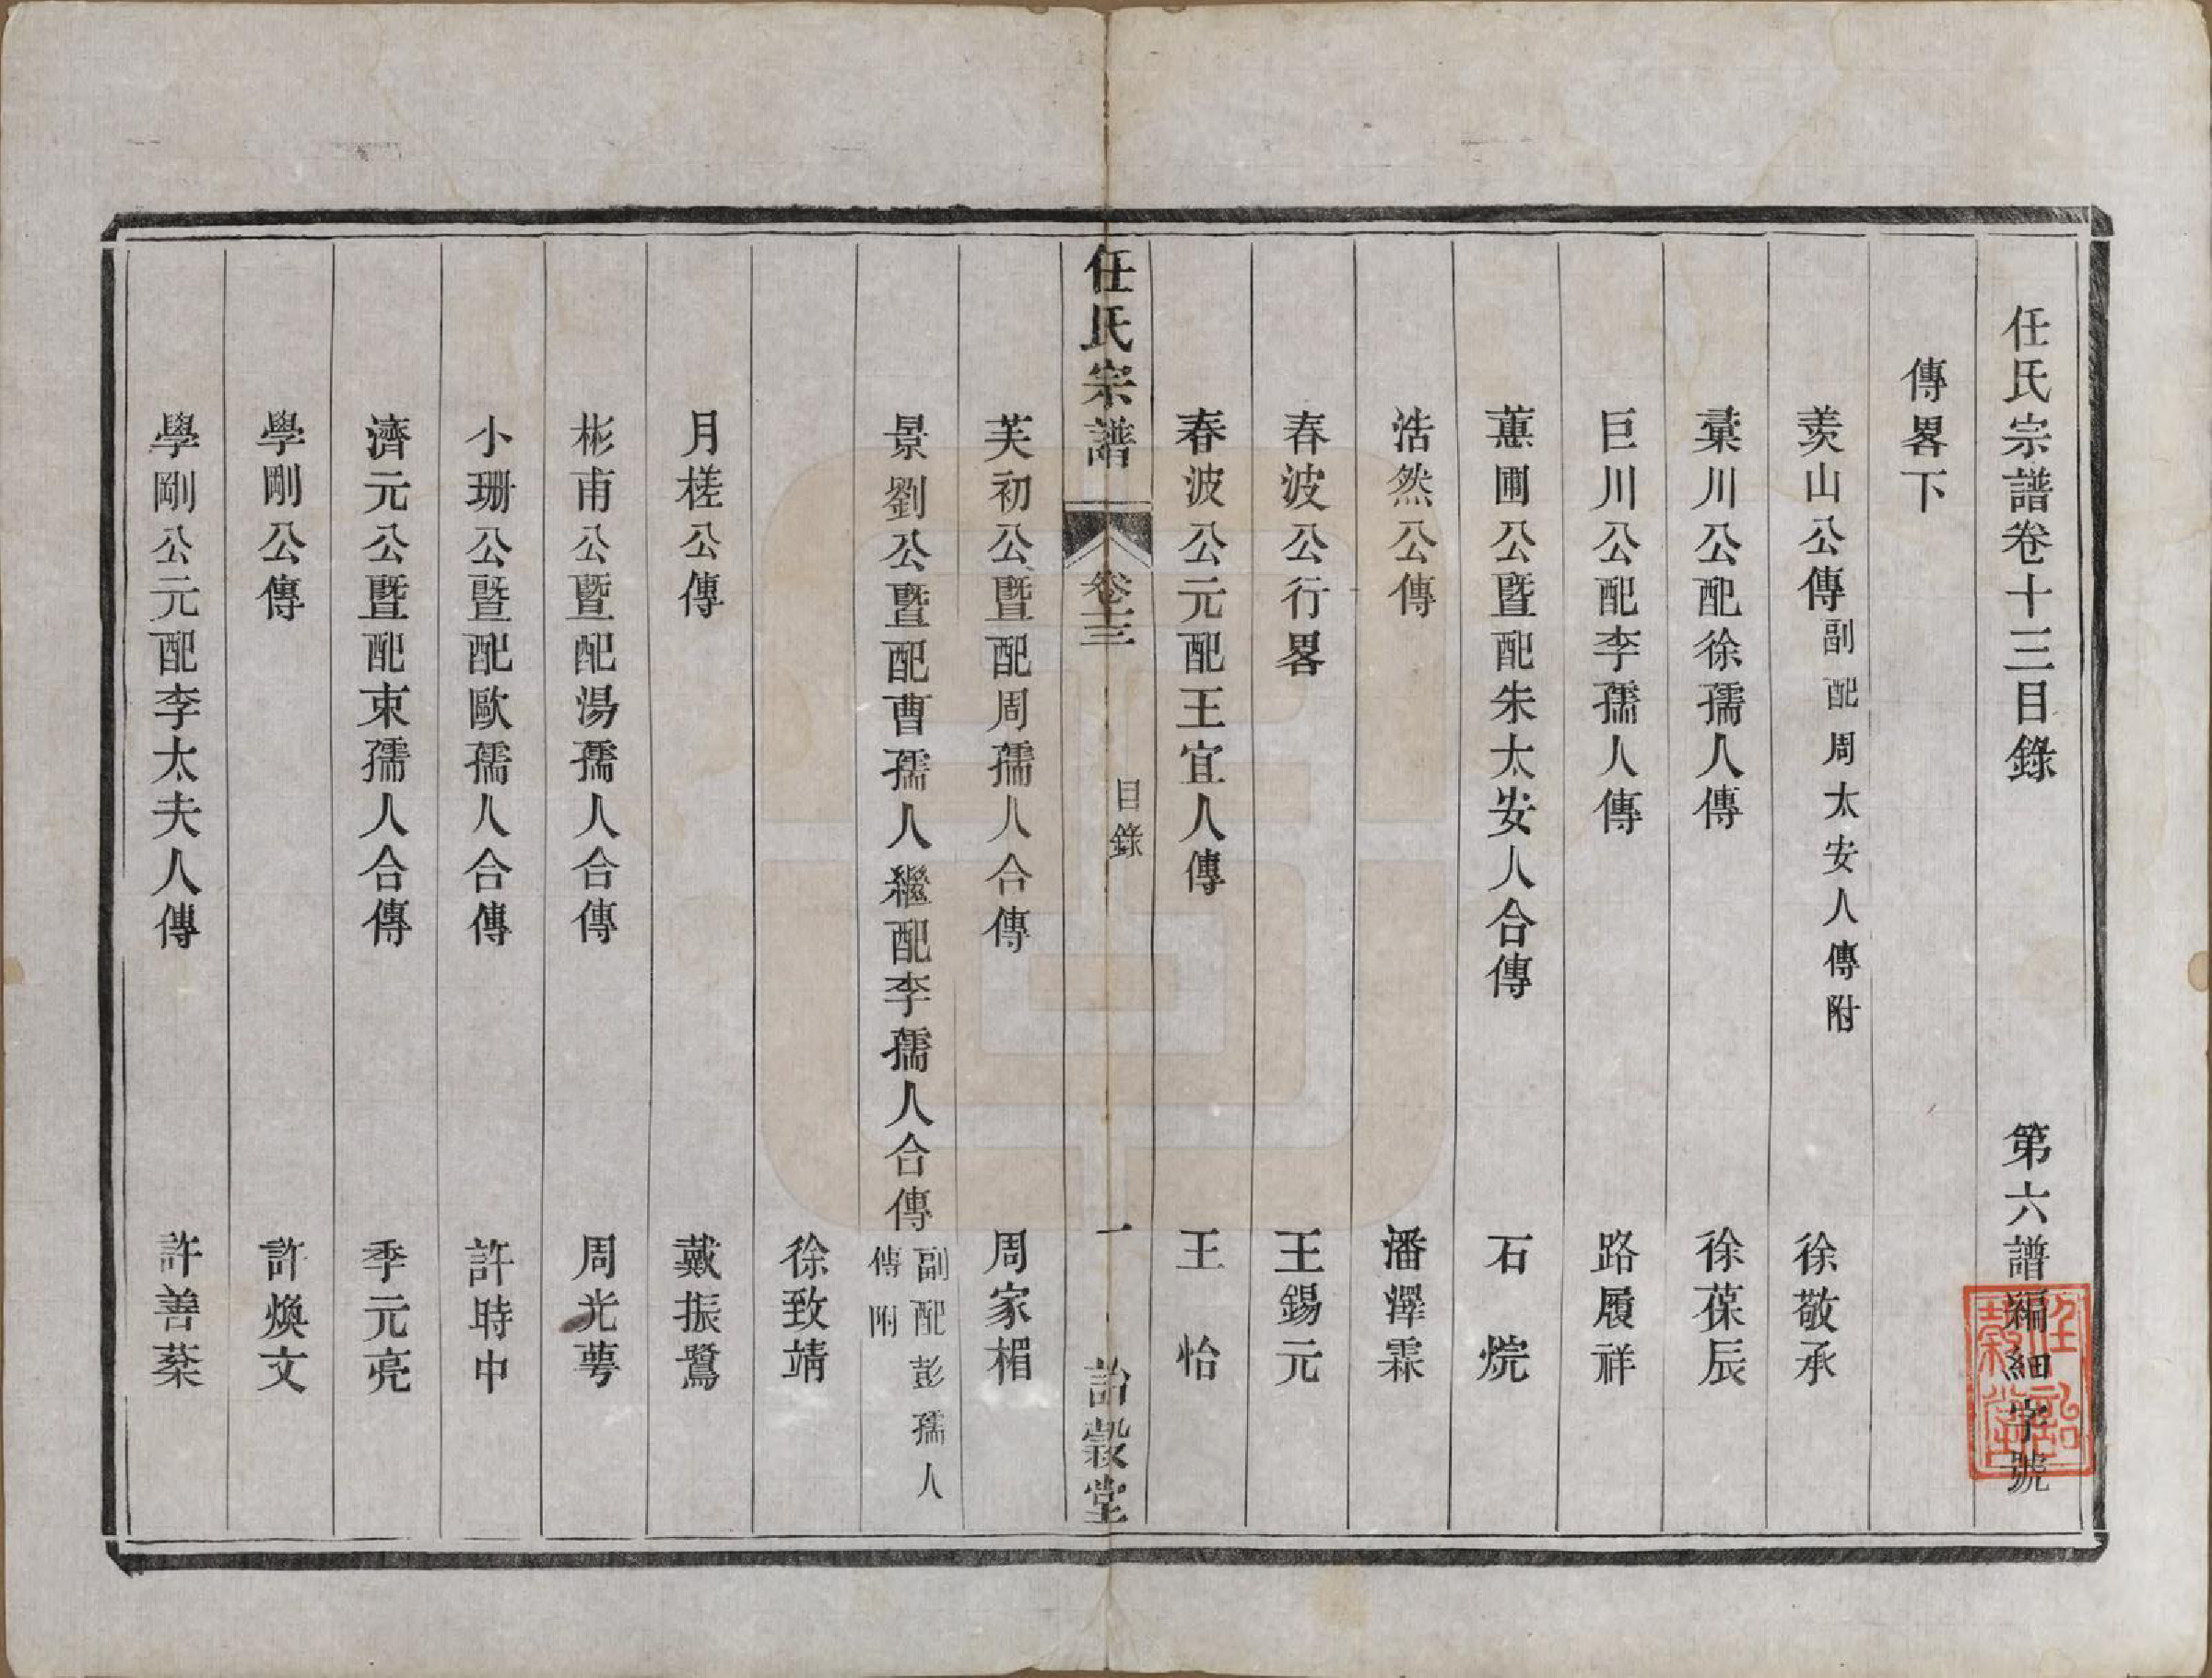 任氏宗譜卷十三目錄 第六譜編細字號
傳畧下
羨山公傳 副配周太安人傳附 徐敬承
彙川公配徐孺人傳 徐葆辰
巨川公配李孺人傳 路履祥
蕙圃公暨配朱太安人合傳 石烷
浩然公傳 潘澤霖
春波公行畧 王錫元
春波公元配王宜人傳 王怡
任氏宗譜 卷十三 目錄 一 詒穀堂
芙初公暨配周孺人合傳 周家楣
景劉公暨配曹孺人繼配李孺人合傳 副配彭孺人
傳附
徐致靖
月槎公傳 戴振鷺
彬甫公暨配湯孺人合傳 周光蕚
小珊公暨配歐孺人合傳 許時中
濟元公暨配束孺人合傳 季元亮
學剛公傳 許煥文
學剛公元配李太夫人傳 許善棻
任詒穀堂